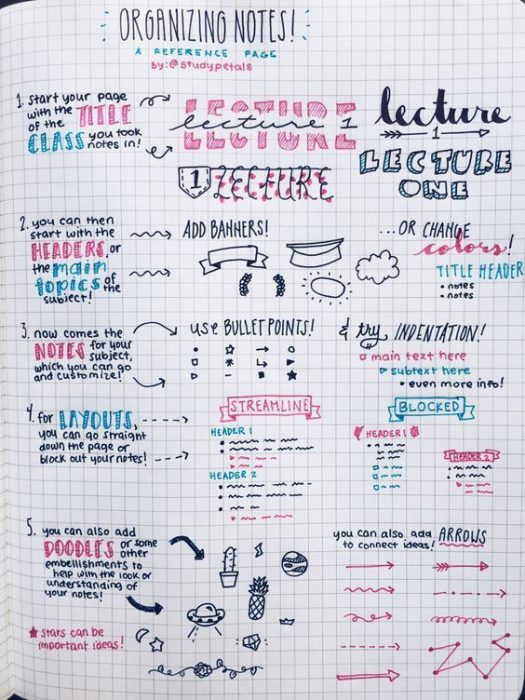 ORGANIZING NOTES!
A REFERENCE PAGE
by:@studypetals
1. start your page
with the TITLE
of the
CLASS you took
notes in!
LECTURE
lecture 1
LECTURE
1 LECTURE
lecture
1
LECTURE
ONE
2. you can then
start with the
HEADERS, or
the main
topics of the
subject!
ADD BANNERS!
...OR CHANGE
colors!
TITLE HEADER
• notes
• notes
3. now comes the
NOTES for your
subject,
which you can go
and customize!
use BULLET POINTS!
& try INDENTATION!
main text here
subtext here
• even more info!
4. for LAYOUTS,
you can go straight
down the page or
block out your notes!
STREAMLINE
HEADER 1
HEADER 2
BLOCKED
HEADER 1
HEADER 2
5. you can also add
DOODLES or some
other
embellishments to
help wim the look or
understanding of
your notes!
★ stars can be
important ideas!
you can also add ARROWS
to connect ideas!